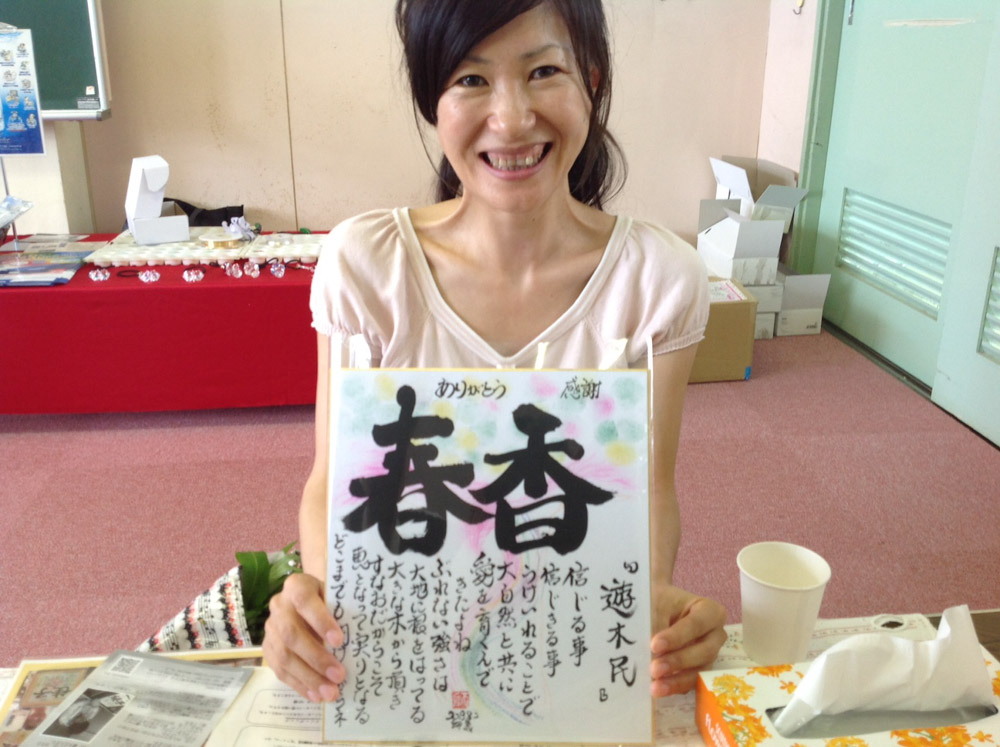 ありがとう 感謝
春香
遊木民
信じる事
信じきる事
うけいれることで
大自然と共に
愛を育くんで
きたよね
ぶれない強さは
大地に根をはってる
大きな木から頂き
すなおだからこそ
恵となって実りとなる
どこまでも